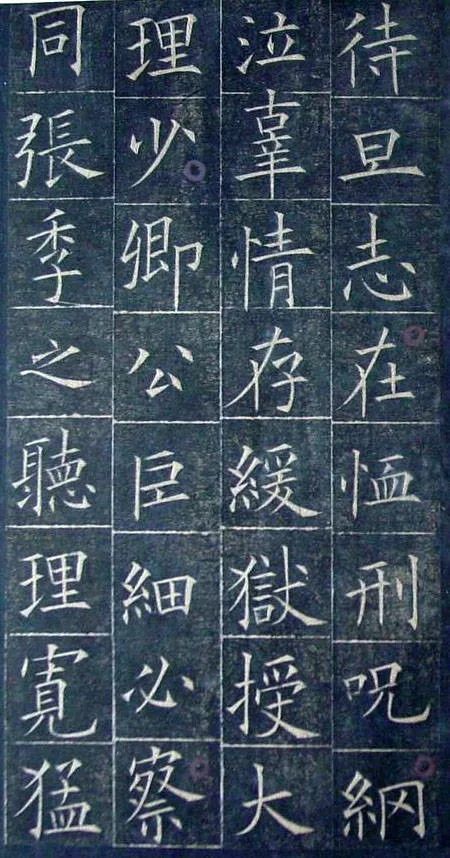 待旦志在恤刑呪網
泣辜情存緩獄授大
理少卿公巨細必察
同張季之聽理寬猛